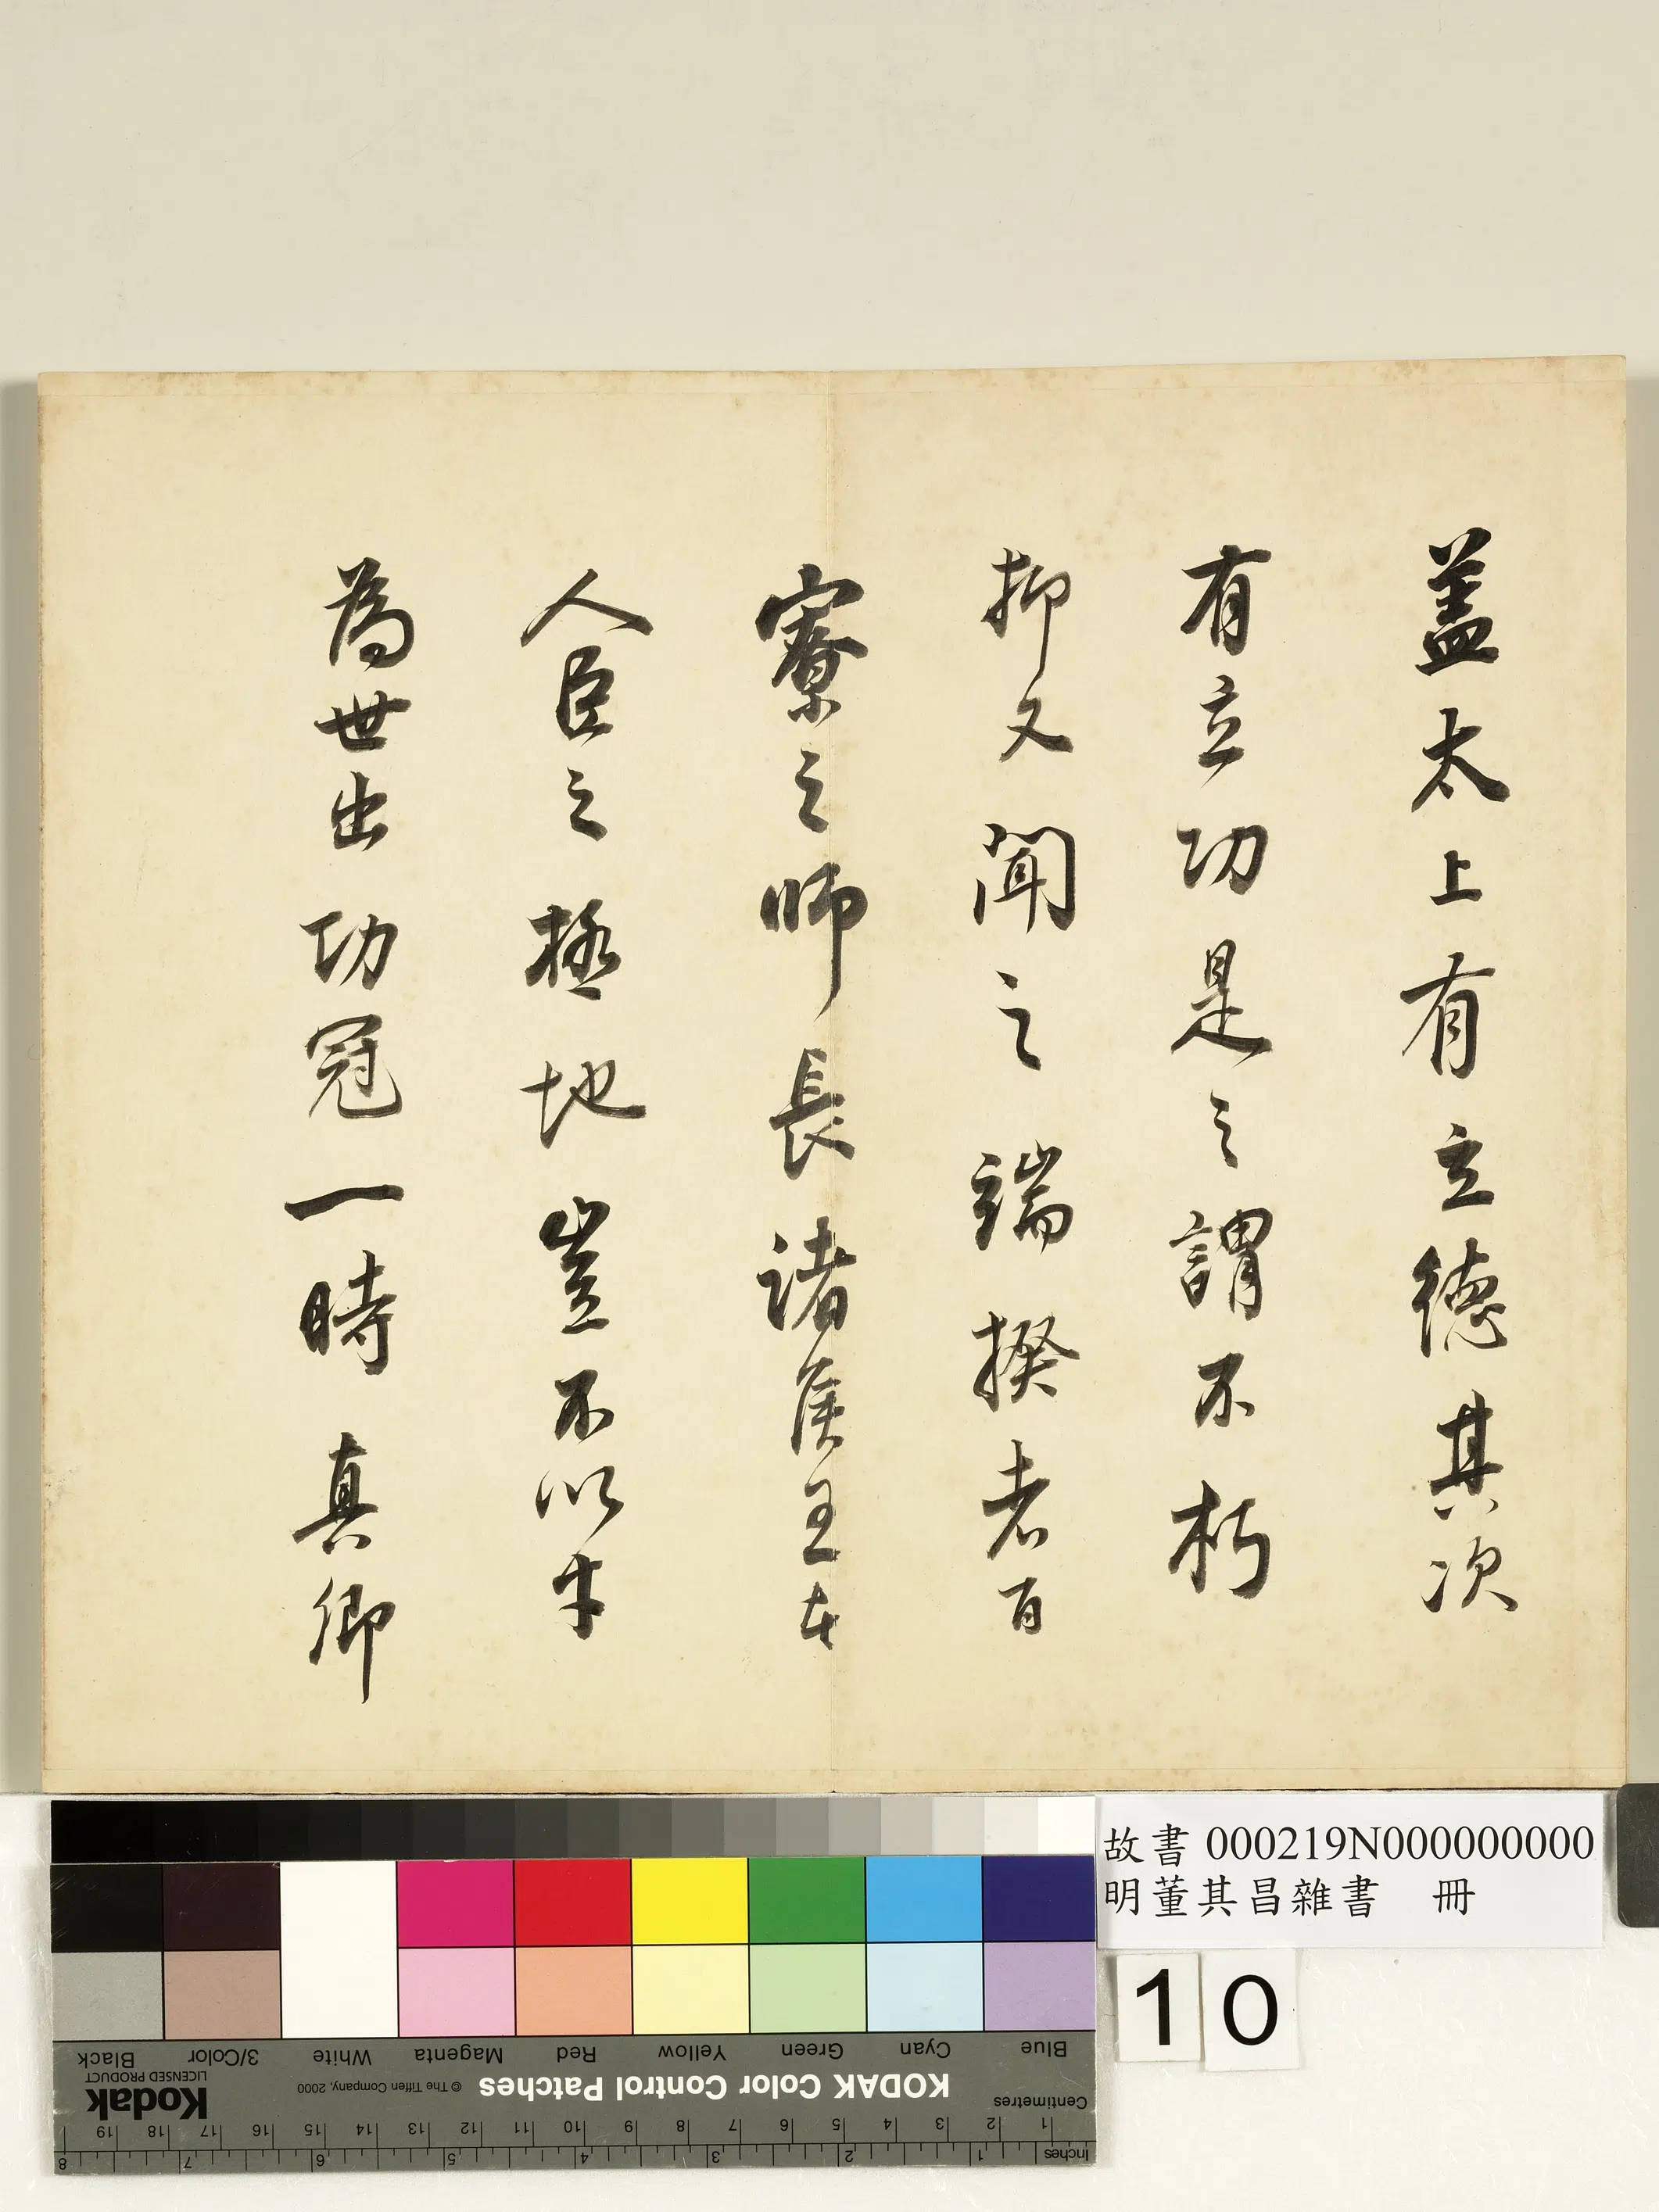 蓋太上有立德其次
有立功是之謂不朽
抑又聞之端揆者百
寮之師長諸侯王者
人臣之極地豈不以才
為世出功冠一時真卿
故書 000219N000000000
明董其昌雜書 冊
10
Blue
Cyan
Green
Yellow
Red
Magenta
White
3/Color
Black
KODAK Color Control Patches
© The Tiffen Company, 2000
Kodak
LICENSED PRODUCT
Centimetres
1 2 3 4 5 6 7 8 9 10 11 12 13 14 15 16 17 18 19
Inches
1 2 3 4 5 6 7 8